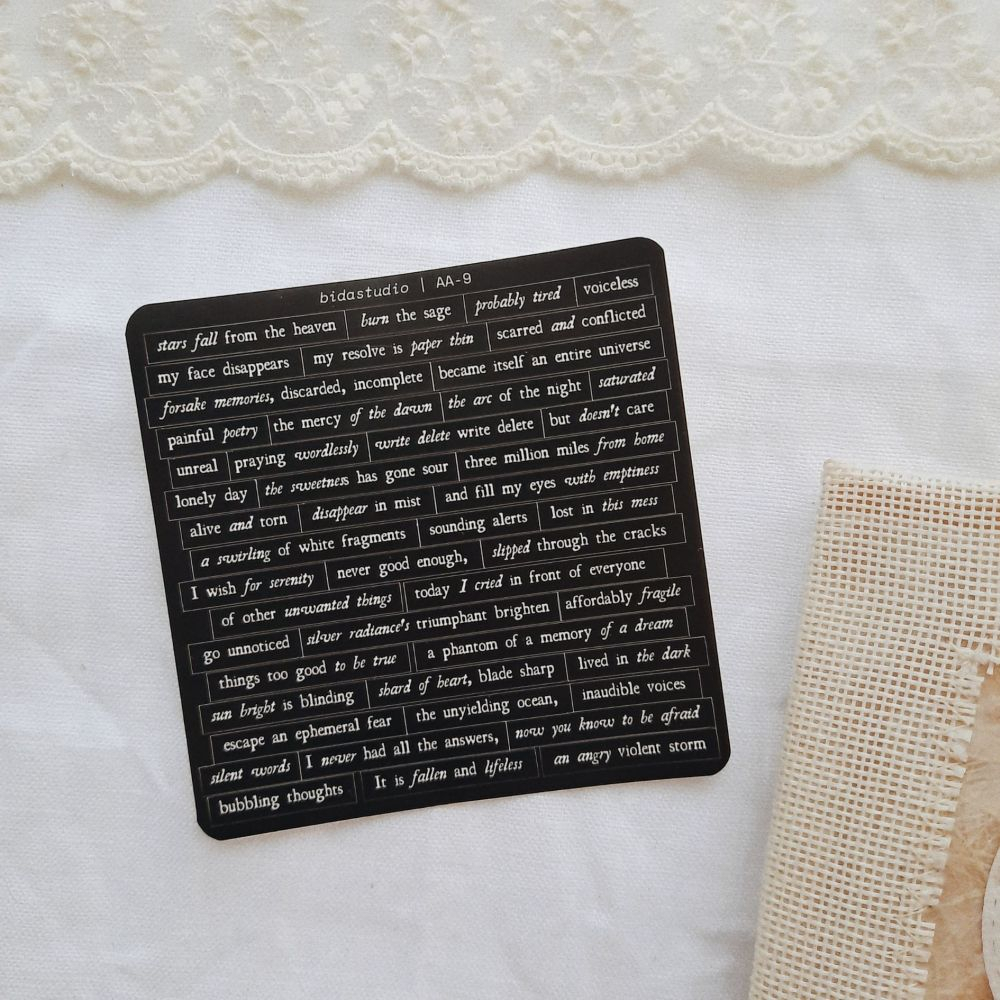 bidastudio | AA-9
stars fall from the heaven burn the sage probably tired voiceless
my face disappears my resolve is paper thin scarred and conflicted
forsake memories, discarded, incomplete became itself an entire universe
painful poetry the mercy of the dawn the arc of the night saturated
unreal praying wordlessly write delete write delete but doesn't care
lonely day the sweetness has gone sour three million miles from home
alive and torn disappear in mist and fill my eyes with emptiness
a swirling of white fragments sounding alerts lost in this mess
I wish for serenity never good enough, slipped through the cracks
of other unwanted things today I cried in front of everyone
go unnoticed silver radiance's triumphant brighten affordably fragile
things too good to be true a phantom of a memory of a dream
sun bright is blinding shard of heart, blade sharp lived in the dark
escape an ephemeral fear the unyielding ocean, inaudible voices
silent words I never had all the answers, now you know to be afraid
bubbling thoughts It is fallen and lifeless an angry violent storm